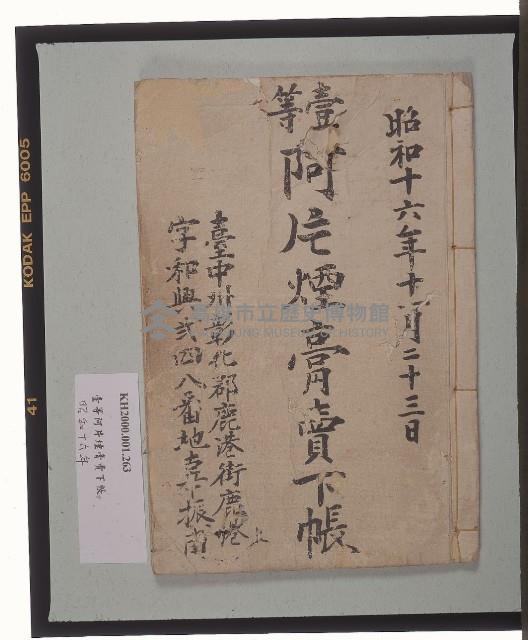 昭和十六年十一月二十三日
壹等
阿片煙膏賣下帳
臺中州彰化郡鹿港街鹿港
字和興貳四八番地 振南
高雄市立歷史博物館
KAOHSIUNG MUSEUM OF HISTORY
KH2000.001.263
壹等阿片煙膏賣下帳。
昭和十六年
KODAK EPP 6005
41